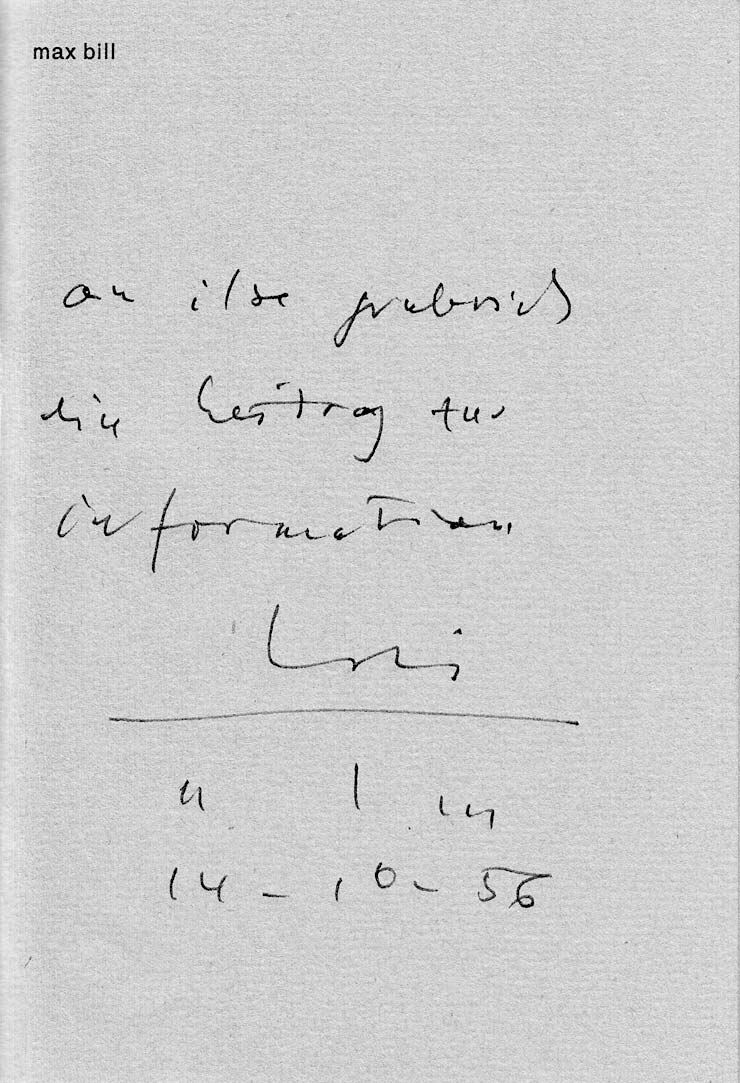 max bill
an ilse grubrich
ein beitrag zur
information
ulm
14-10-56